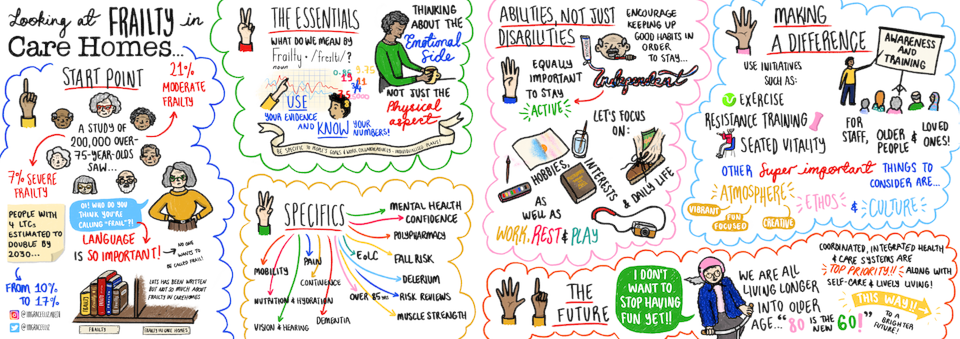 Looking at FRAILTY in
Care Homes...
START POINT
21%
MODERATE
FRAILTY
A STUDY OF
200,000 OVER-
75-YEAR-OLDS
SAW...
7% SEVERE
FRAILTY
PEOPLE WITH
4 LTCs
ESTIMATED TO
DOUBLE BY
2030...
OI! WHO DO YOU
THINK YOU'RE
CALLING "FRAIL"?!
LANGUAGE
IS SO IMPORTANT!
NO ONE
WANTS TO
BE CALLED FRAIL!
FROM 10%
TO 17%
LOTS BEEN WRITTEN
BUT NOT SO MUCH ABOUT
FRAILTY IN CAREHOMES
FRAILTY
FRAILTY IN CARE HOMES
THE ESSENTIALS
WHAT DO WE MEAN BY
frailty · /ˈfreɪltɪ/?
noun
USE
YOUR EVIDENCE
AND KNOW YOUR
NUMBERS!
THINKING
ABOUT THE
Emotional
Side
NOT JUST THE
Physical
aspect
SPECIFICS
MENTAL HEALTH
CONFIDENCE
POLYPHARMACY
FALL RISK
DELERIUM
RISK REVIEWS
MUSCLE STRENGTH
EoLC
OVER 85s
DEMENTIA
PAIN
CONTINENCE
MOBILITY
NUTRITION & HYDRATION
VISION & HEARING
ABILITIES, NOT JUST
DISABILITIES
ENCOURAGE
KEEPING UP
GOOD HABITS IN
ORDER
TO STAY...
Independent
EQUALLY
IMPORTANT
TO STAY
ACTIVE
LET'S FOCUS
ON:
HOBBIES,
INTERESTS
& DAILY LIFE
AS
WELL AS
WORK, REST & PLAY
MAKING
A DIFFERENCE
USE INITIATIVES
SUCH AS:
EXERCISE
RESISTANCE TRAINING
SEATED VITALITY
AWARENESS
AND
TRAINING
FOR
STAFF,
OLDER
PEOPLE
& LOVED
ONES!
OTHER Super important THINGS TO
CONSIDER ARE...
ATMOSPHERE
VIBRANT
FUN
FOCUSED
CREATIVE
ETHOS
& CULTURE
THE
FUTURE
I DON'T
WANT TO
STOP HAVING
FUN YET!!
WE ARE ALL
LIVING LONGER
INTO OLDER
AGE... "80 IS THE NEW 60!"
COORDINATED, INTEGRATED HEALTH
& CARE SYSTEMS ARE
TOP PRIORITY!! ALONG WITH
SELF-CARE & LIVELY LIVING!
THIS WAY!!
TO A
BRIGHTER
FUTURE!